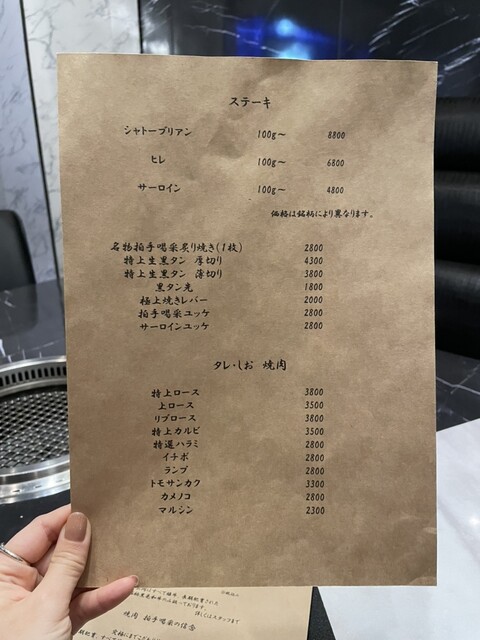 ステーキ
シャトーブリアン 100g～ 8800
ヒレ 100g～ 6800
サーロイン 100g～ 4800
価格は銘柄により異なります。
名物拍手喝采炙り焼き(1枚) 2800
特上生黒タン 厚切り 4300
特上生黒タン 薄切り 3800
黒タン先 1800
極上焼きレバー 2000
拍手喝采ユッケ 2800
サーロインユッケ 2800
タレ・しお 焼肉
特上ロース 3800
上ロース 3500
リブロース 3800
特上カルビ 3500
特選ハラミ 2800
イチボ 2800
ランプ 2800
トモサンカク 3300
カメノコ 2800
マルシン 2300
詳しくはスタッフまで
焼肉 拍手喝采の信念